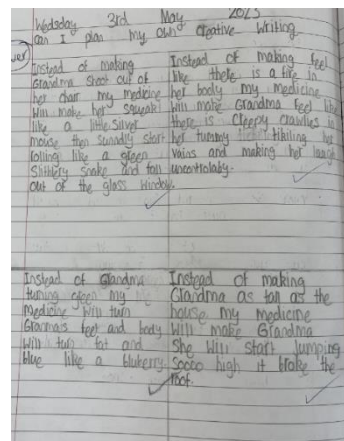 Wedsday 3rd May 2023
can I plan my own creative writing
Instead of making
Grandma shoot out of
her chair my medicine
will make her squeak
like a little silver
mouse then sunadly start
rolling like a green
Slithery snake and fall
out of the glass window.
Instead of making feel
like there is a fire in
her body my medicine
will make Grandma feel like
there is cleepy crawlies in
her tummy tikiling her
vains and making her laugh
uncontrolaby.
Instead of Glandma
turning green my
Medicine will turn
Granma's feet and body
will turn fat and
blue like a blukerry.
Instead of making
Glandma as tall as the
house my medicine
will make Grandma
She will start jumping
Sooco high it broke the
roof.